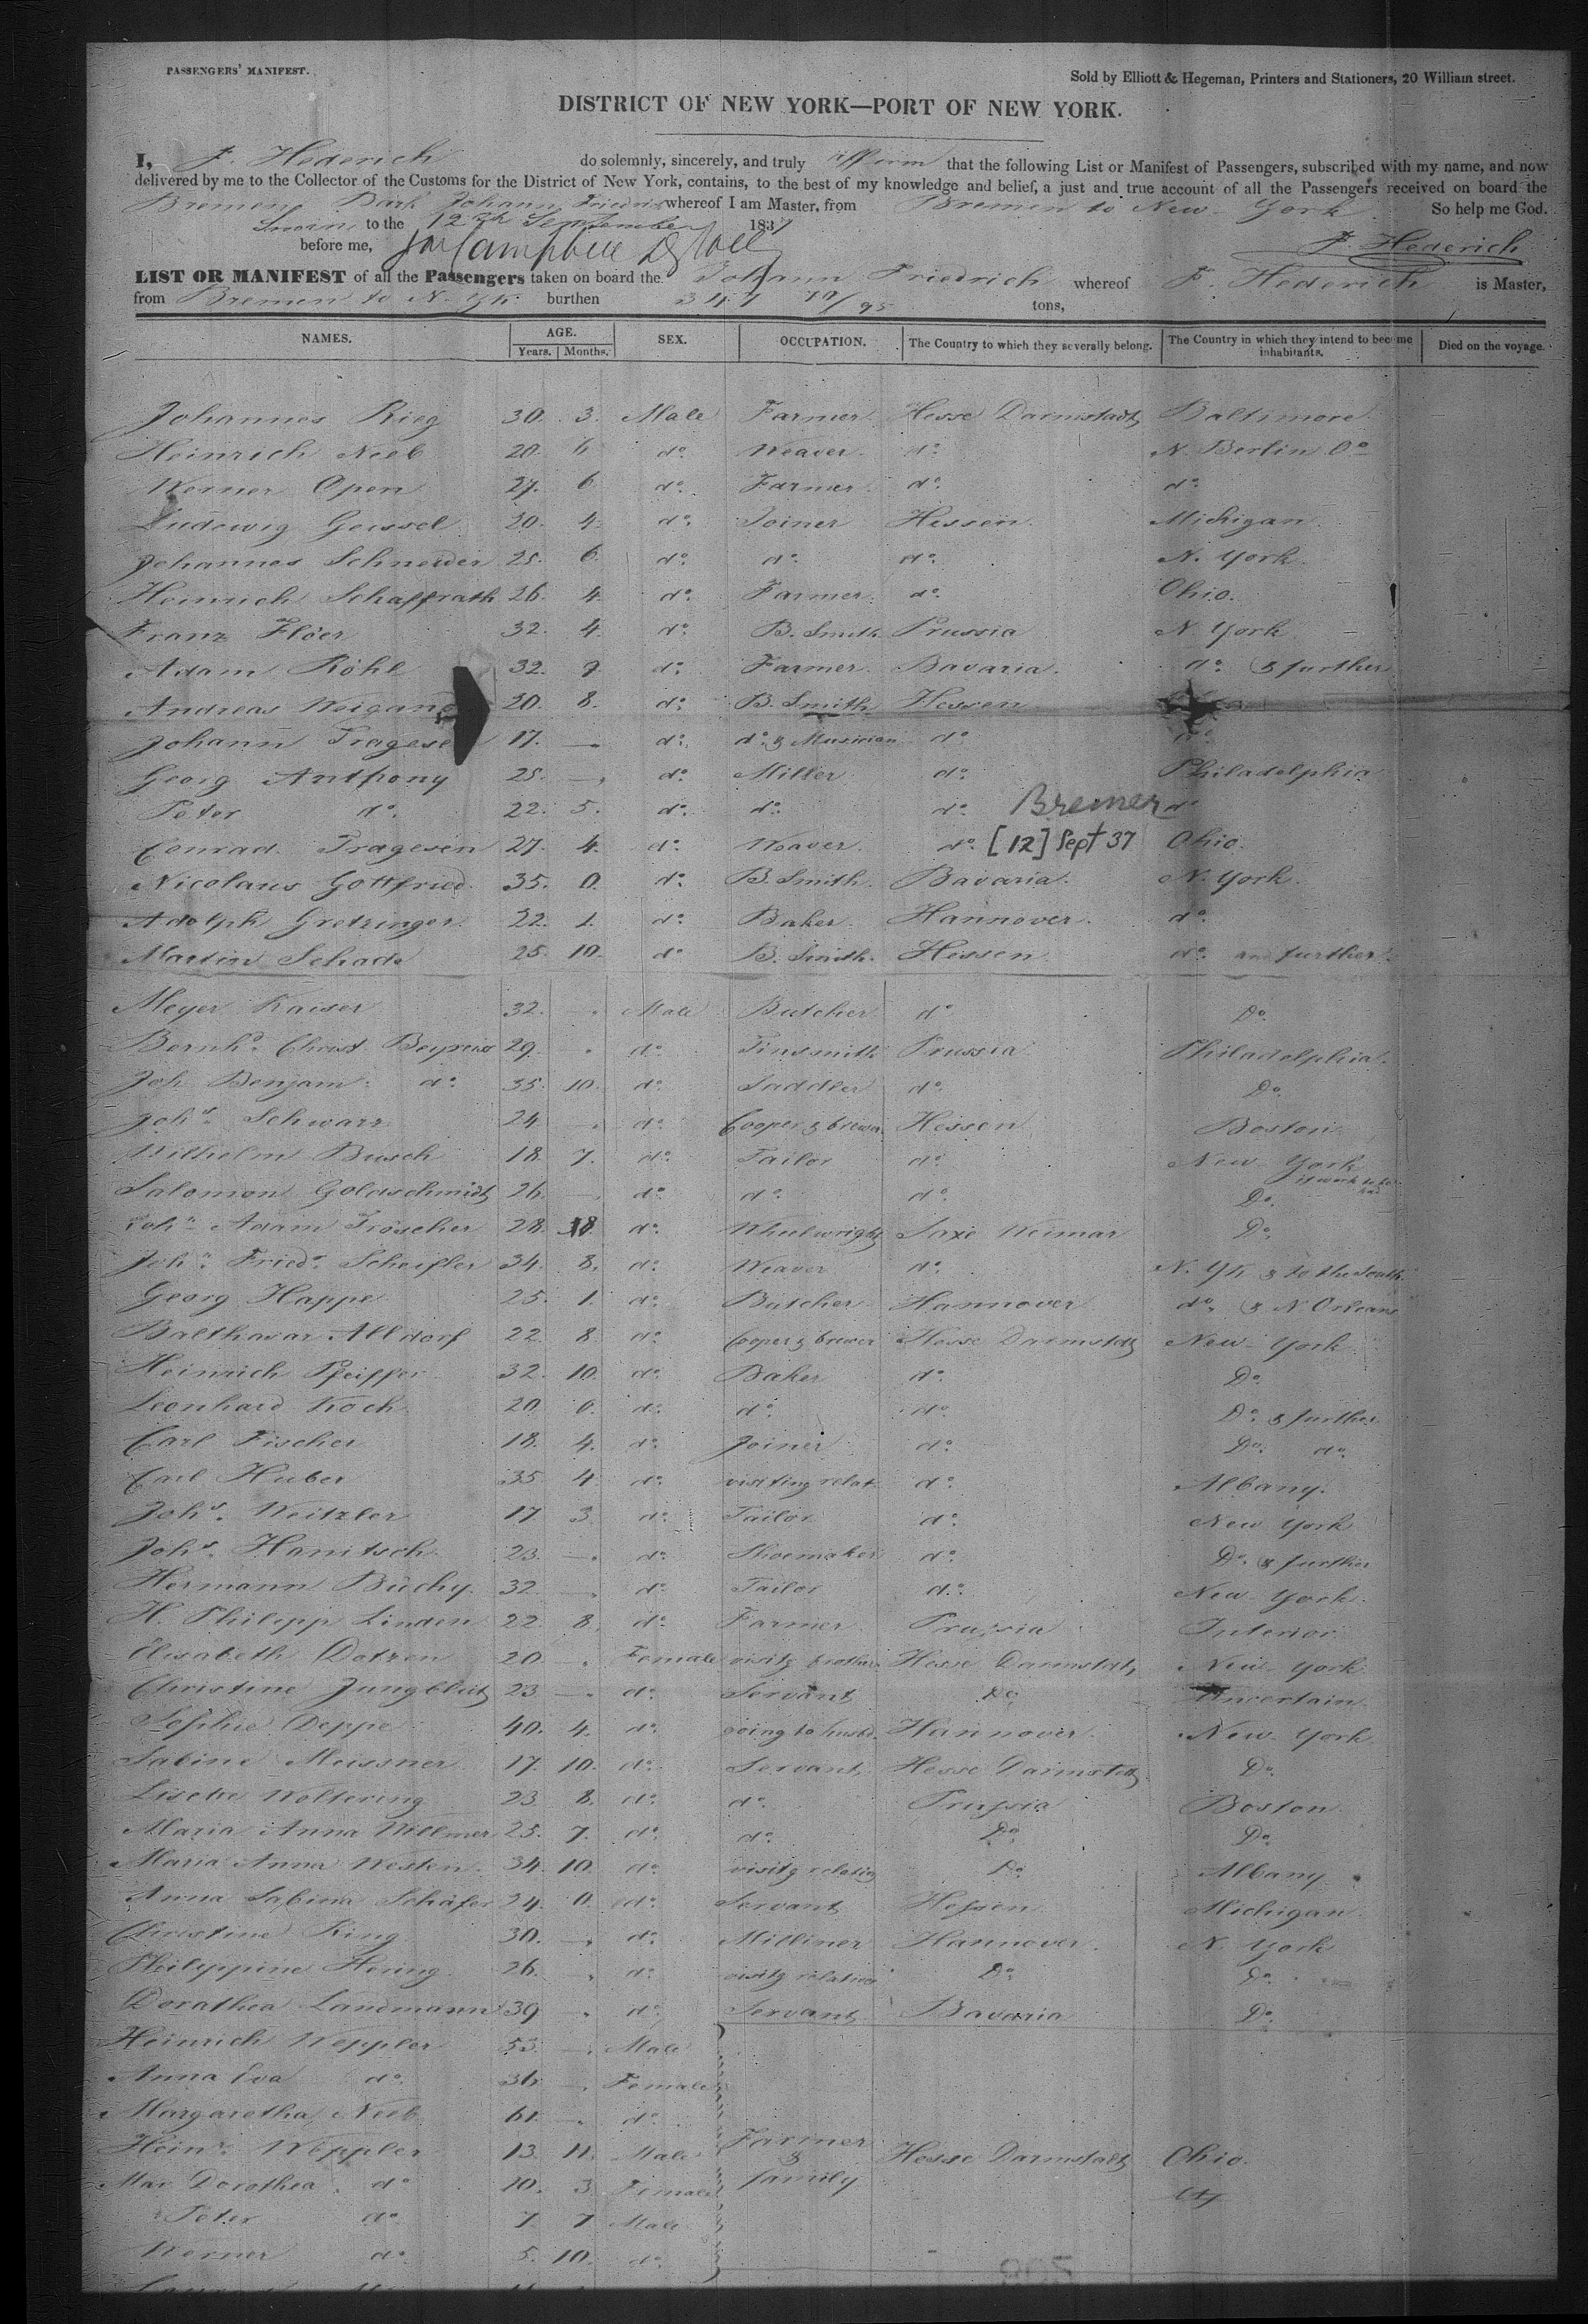 PASSENGERS' MANIFEST.
Sold by Elliott & Hegeman, Printers and Stationers, 20 William street.
DISTRICT OF NEW YORK—PORT OF NEW YORK.
I, F. Hederich do solemnly, sincerely, and truly affirm that the following List or Manifest of Passengers, subscribed with my name, and now
delivered by me to the Collector of the Customs for the District of New York, contains, to the best of my knowledge and belief, a just and true account of all the Passengers received on board the
Bremen Bark Johann Friedrich whereof I am Master, from Bremen to New York So help me God.
Sworn to the 12th September 1837
before me, F. Hederich
LIST OR MANIFEST of all the Passengers taken on board the Johann Friedrich whereof F. Hederich is Master,
from Bremen to N. Yk. burthen 347 /95 tons,
NAMES. AGE. SEX. OCCUPATION. The Country to which they severally belong. The Country in which they intend to become inhabitants. Died on the voyage.
Years. Months.
Johannes Rieg 30. 3. Male Farmer Hesse Darmstadt Baltimore
Heinrich Neeb 20. 6 do. Weaver do. N. Berlin Oo
Werner Open 27. 6 do. Farmer do. do.
Ludewig Geissel 20. 4. do. Joiner Hessen Michigan
Johannes Schneider 25. 6. do. do. do. N. York
Heinrich Schaffrath 26. 4. do. Farmer do. Ohio.
Franz Flöer 32. 4. do. B. Smith Prussia N. York
Adam Röhl 32. 9. do. Farmer Bavaria. do. & further
Andreas Weigand 20. 8. do. B. Smith Hessen
Johann Tragese 17. — do. do. & Musician do. do.
Georg Anthony 25. — do. Miller do. Philadelphia
Peter do. 22. 5. do. do. do. Bremen do.
Conrad Tragesen 27. 4. do. Weaver do. [12] Sept 37 Ohio.
Nicolaus Gottfried 35. 0. do. B. Smith. Bavaria. N. York.
Adolph Gretzinger 22. 1. do. Baker Hannover. do.
Martin Schade 25. 10. do B. Smith. Hessen do. and further
Meyer Kaiser 32. — Male Butcher do. Do.
Bernhd. Christ. 29. do. Tinsmith Prussia Philadelphia.
Joh. Benjam. do. 35. 10. do. Saddler do. Do.
Johs. Schwarz 24. — do. Cooper & brewer Hessen Boston
Wilhelm Busch 18. 7. do. Tailor do. New York
if work to be had
Salomon Goldschmidt 26. — do. do. do. Do.
John. Adam Tröscher 28. 18. do. Wheelwright Saxe Weimar Do.
Joh. Fried. Scheifler 34. 8. do. Weaver do. N. Yk & to the South
Georg Happe 25. 1. do. Butcher Hannover do. & N Orleans
Balthasar Alldorf 22 8. do. Cooper & brewer Hesse Darmstdt New York
Heinrich Pfeiffer 32. 10. do. Baker do. Do.
Leonhard Koch 20 0. do. do. do. Do. & further
Carl Fischer 18. 4. do. Joiner do. Do. do.
Carl Huber 35 4 do. visiting relat. do. Albany.
Johs. Weitzler 17 3. do. Tailor do. New York
Johs. Hanitsch 23 — do. Shoemaker do. Do. & further
Hermann Büchy. 32. — do. Tailor do. New York.
H. Philipp Linden 22. 8. do. Farmer Prussia Interior
Elisabeth Dotzen 20 — Female visitg brother Hesse Darmstdt, New York
Christine Jungblut 23 — do. Servant Do. Uncertain
Sophie Deppe 40. 4. do. going to husbd. Hannover. New York
Sabine Meissner 17. 10. do. Servant Hesse Darmstdt Do.
Lisette Woltering 23 8. do. do. Prussia Boston
Maria Anna Willmer 25. 7. do. do. Do. Do.
Maria Anna Westen. 34. 10. do. visitg relatiog Do. Albany
Anna Sabina Schäfer 24. 0. do. Servant Hessen Michigan
Christine King 30. — do. Milliner Hannover. N. York
Philippine Hering 26. do. visitg relation Do. Do.
Dorathea Landmann 39 do. Servant Bavaria Do.
Heinrich Weppler 53. — Male
Anna Eva do. 36 — Female
Margaretha Neeb 61. — do.
Heinr. Weppler 13. 11. Male Farmer & family Hesse Darmstadt Ohio.
Mar Dorothea do. 10. 3. Female
Peter do. 7. 7 Male
Werner do. 5. 10. do.